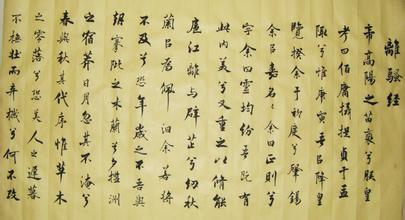 離騷經
帝高陽之苗裔兮朕皇
考曰伯庸攝提貞于孟
陬兮惟庚寅吾以降皇
覽揆余于初度兮肇錫
余以嘉名名余曰正則兮
字余曰靈均紛吾既有
此內美兮又重之以脩能
扈江離與辟芷兮紉秋
蘭以為佩汩余若將
不及兮恐年歲之不吾與
朝搴阰之木蘭兮夕攬洲
之宿莽日月忽其不淹兮
春與秋其代序惟草木
之零落兮恐美人之遲暮
不撫壯而棄穢兮何不改